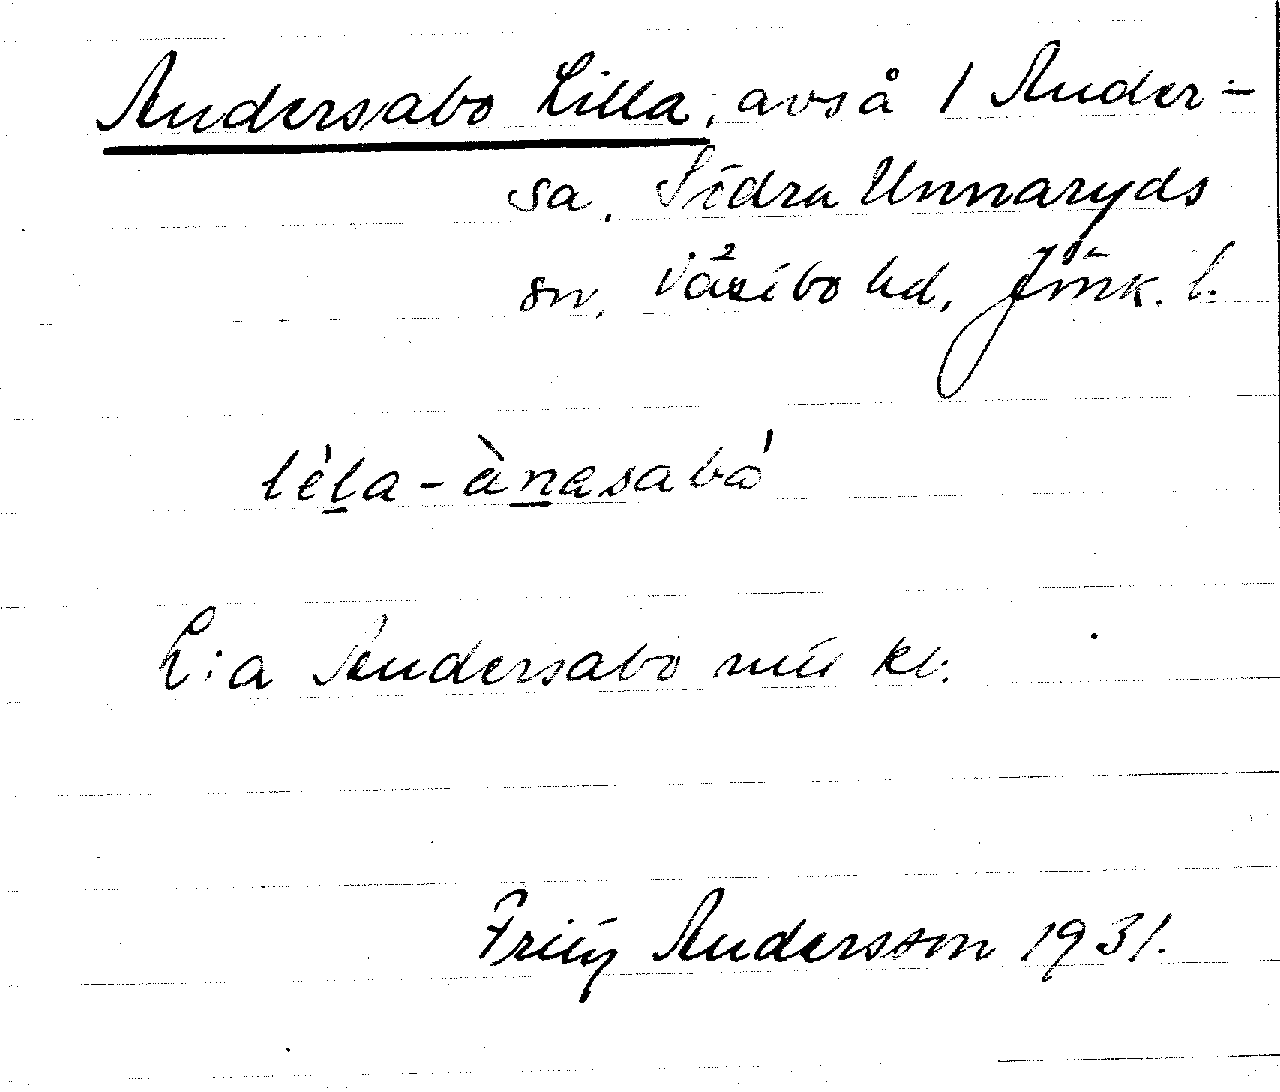 Andersabo Lilla, avs å 1 Ander-
sa, Södra Unnaryds
sn, Västbo hd, Jönk. l.
lèla-ànasabó
L:a Andersabo kl.
Fritz Andersson 1931.